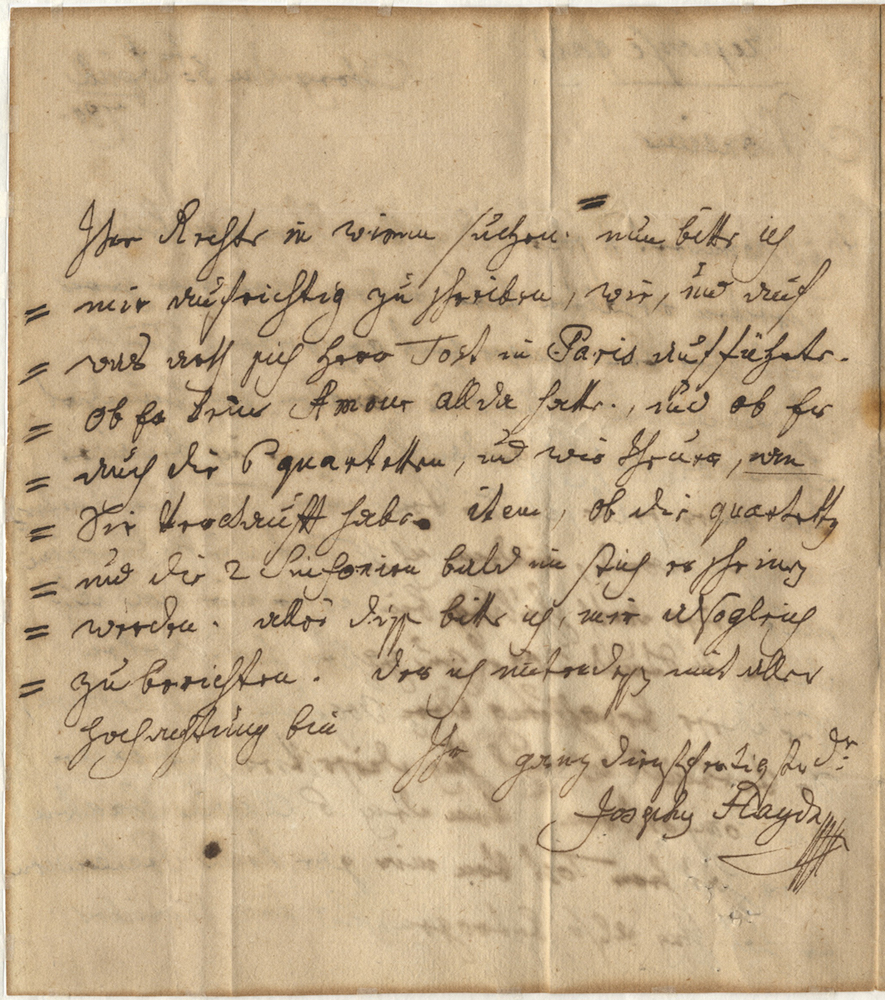 Ihre Rechte in wienn suchen. nun bitte ich
= mir aufrichtig zu schreiben, wie, und auf
= was arth sich Herr Tost in Paris aufführte.
= ob Er keine Amour allda hatte., und ob Er
= auch die 6 quartetten, und wie theuer, wem
= Sie verckaufft habe. item, ob die quartetten
= und die 2 Sinfonien bald im stich erscheinen
= werden. alles diss bitte ich, mir alsogleich
= zu berichten. der ich unterdess mit aller
hochachtung bin Ihr ganz dienstfertigster dr:
Josephus Haydn